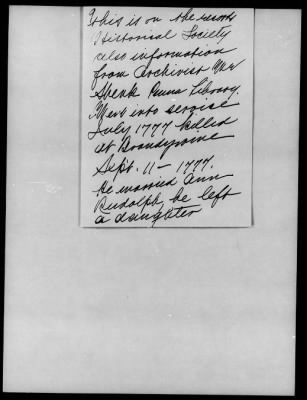 This is on the records
Historical Society
also information
from Archivist Mr
Shenk Penna Library.
Went into service
July 1777 killed
at Brandywine
Sept. 11 - 1777.
he married Ann
Rudolph, he left
a daughter